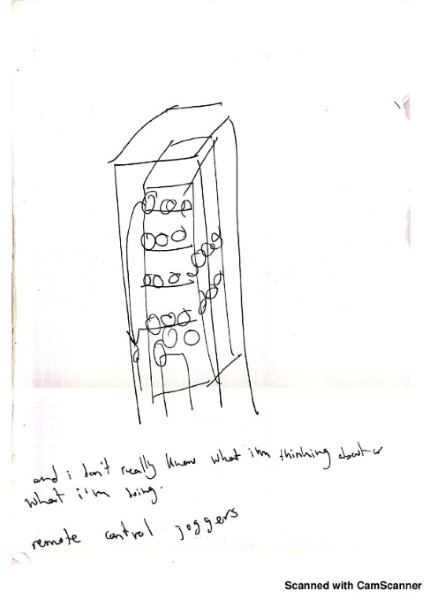 and i don't really know what i'm thinking about or
what i'm doing.
remote control joggers
Scanned with CamScanner